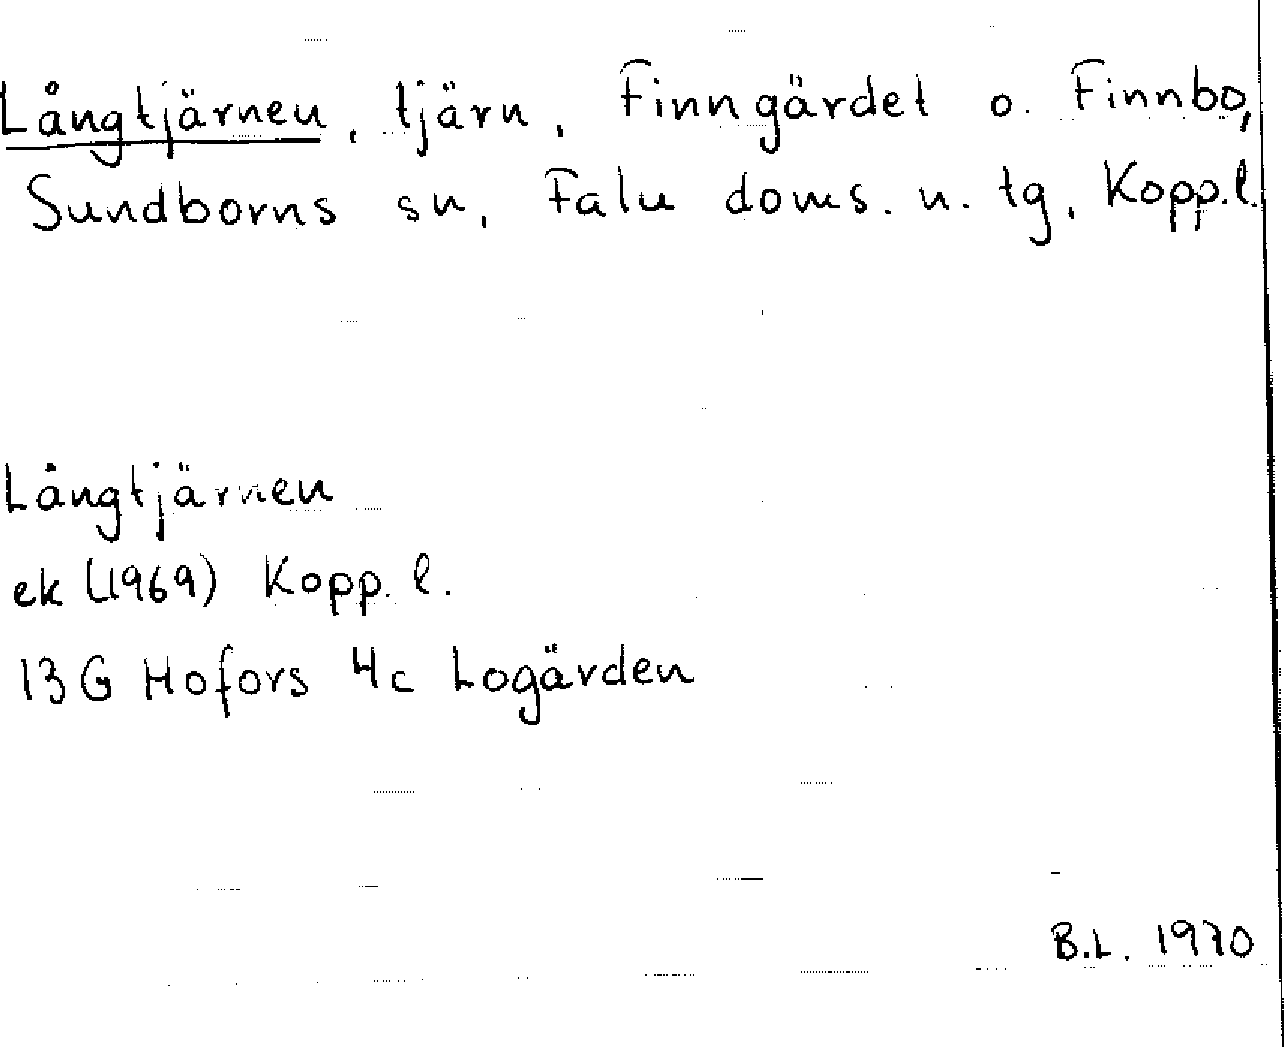 Långtjärnen, tjärn, Finngärdet o. Finnbo,
Sundborns sn, Falu doms. n. tg, Kopp.l.
Långtjärnen
ek (1969) Kopp. l.
13G Hofors 4c Logärden
B.L. 1970